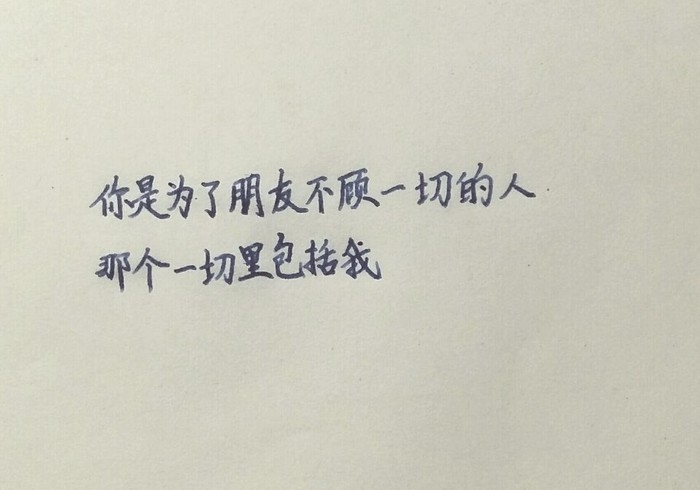 你是为了朋友不顾一切的人
那个一切里包括我